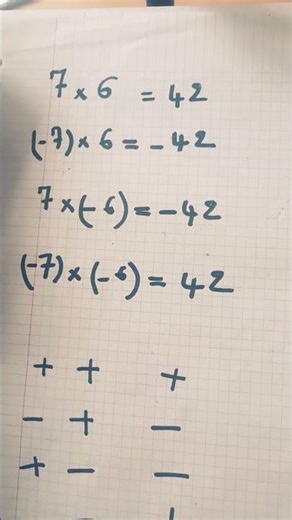 7 × 6 = 42
(-7) × 6 = - 42
7 × (- 6) = - 42
(-7) × (- 6) = 42
+ + +
- + -
+ - -